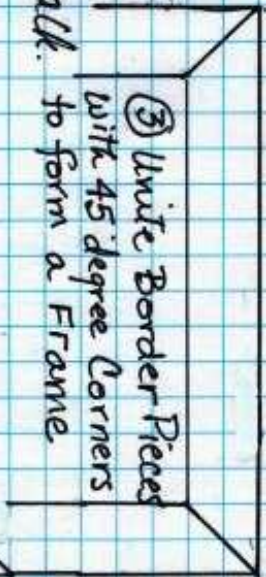 ③ Unite Border Pieces
with 45 degree Corners
to form a Frame